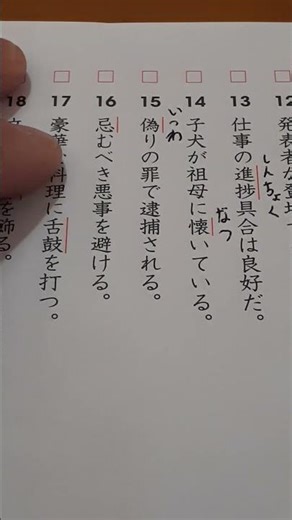 12
発表者が登
13
仕事の進捗具合は良好だ。
しんちょく
14
子犬が祖母に懐いている。
なつ
15
偽りの罪で逮捕される。
いつわ
16
忌むべき悪事を避ける。
17
豪華 料理に舌鼓を打つ。
18
を飾る。